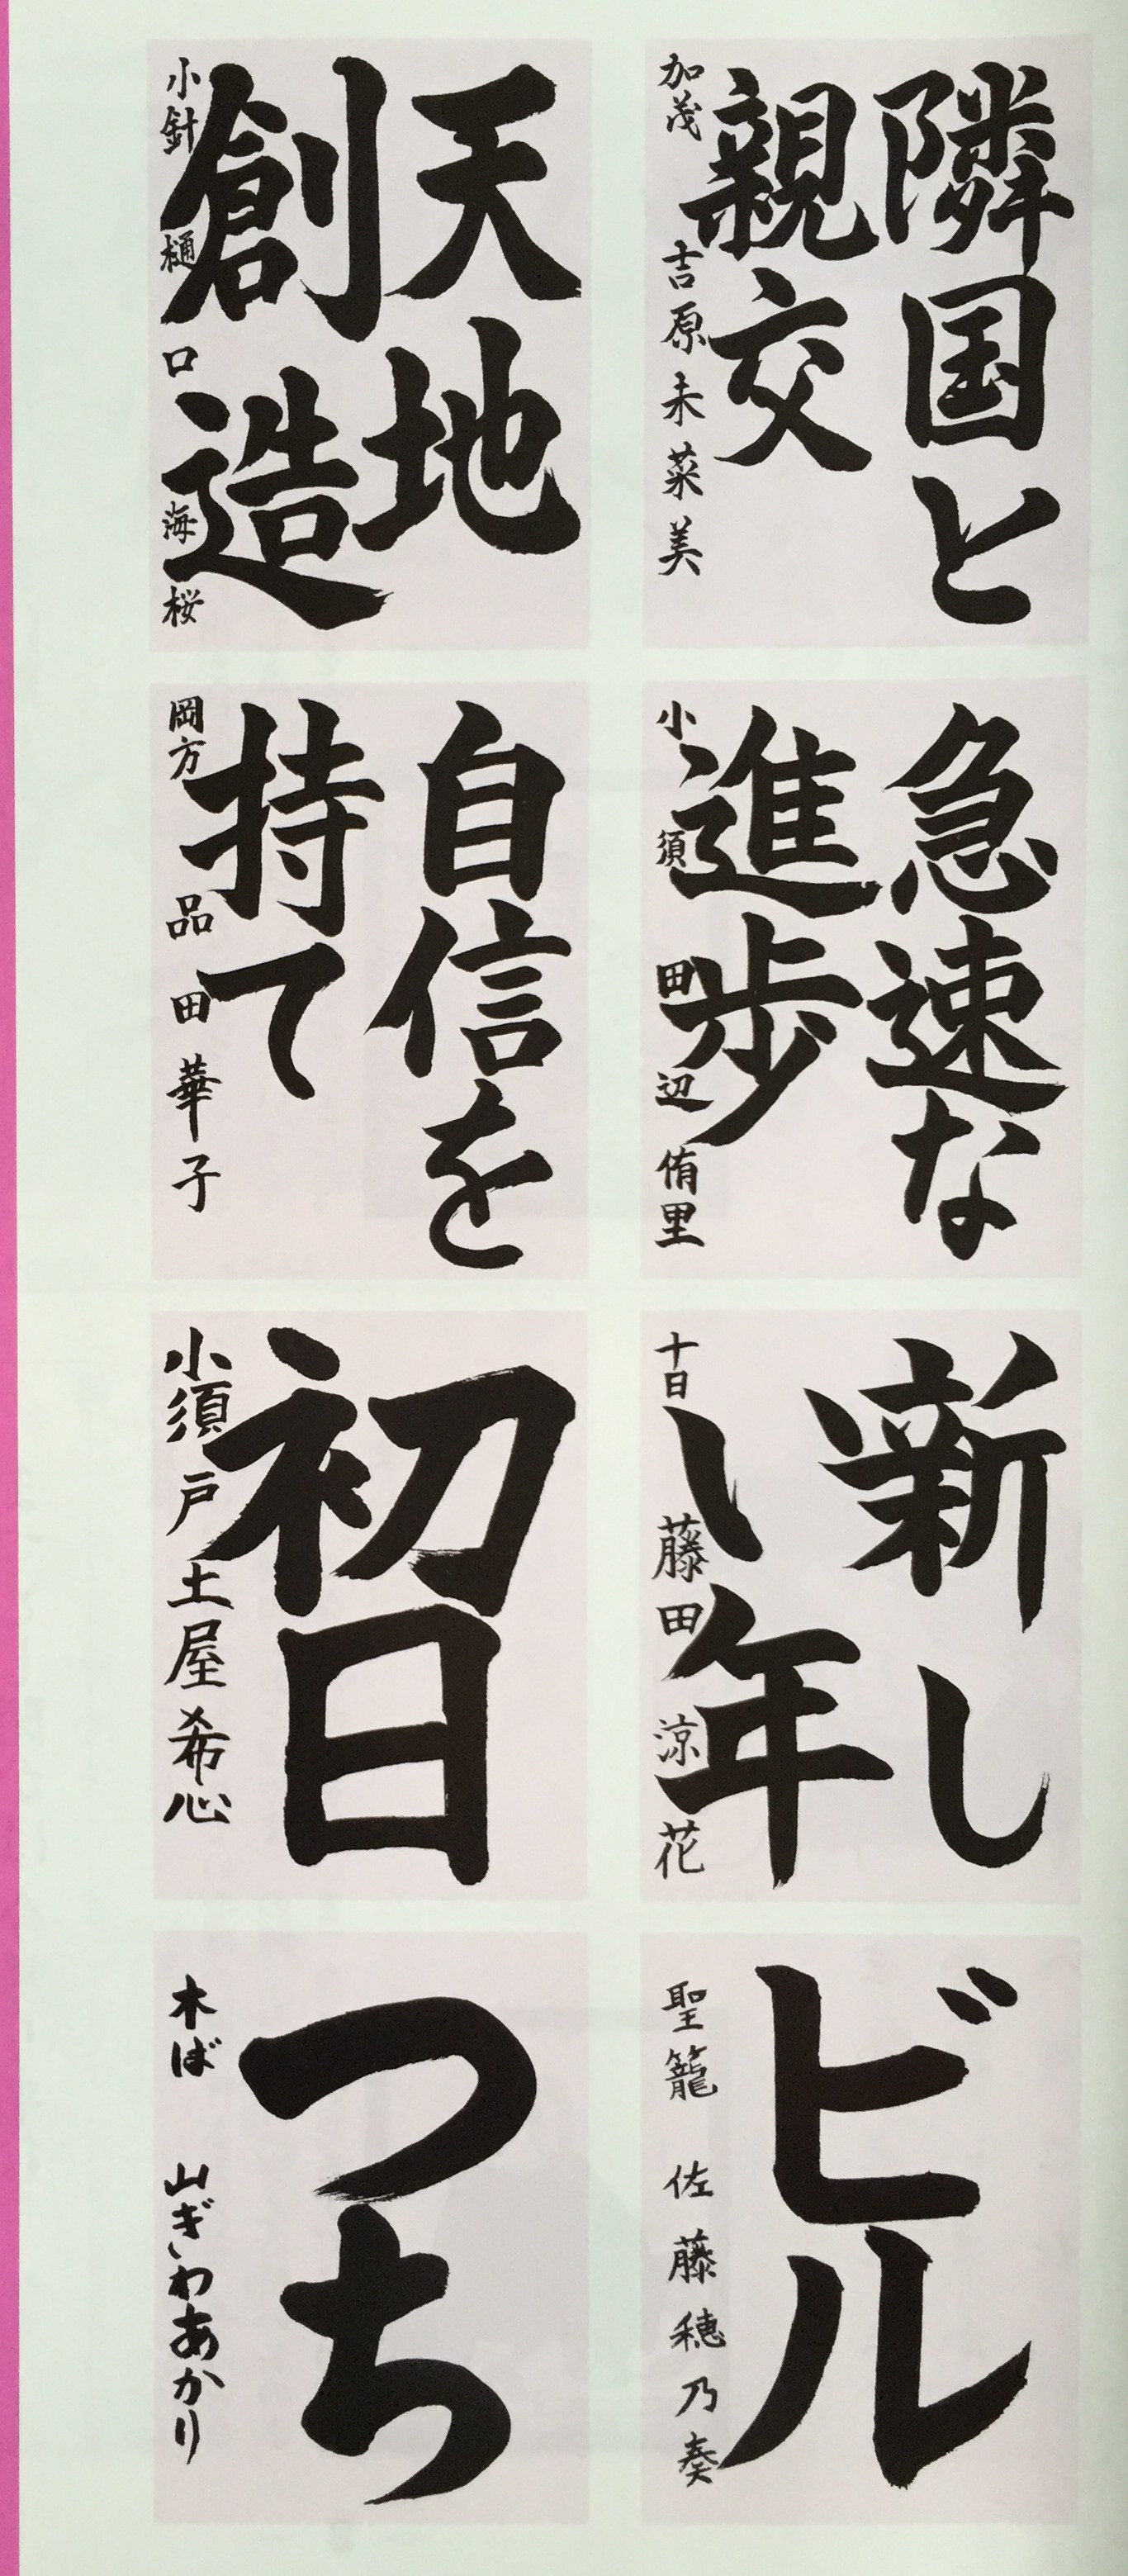 隣国と
親交
加茂 吉原未菜美
天地
創造
小針 樋口海桜
急速な
進歩
小須 田辺侑里
自信を
持て
岡方 品田華子
新し
い年
十日 藤田涼花
初日
小須戸 土屋希心
ビル
聖籠 佐藤穂乃奏
つち
木ば 山ぎわあかり